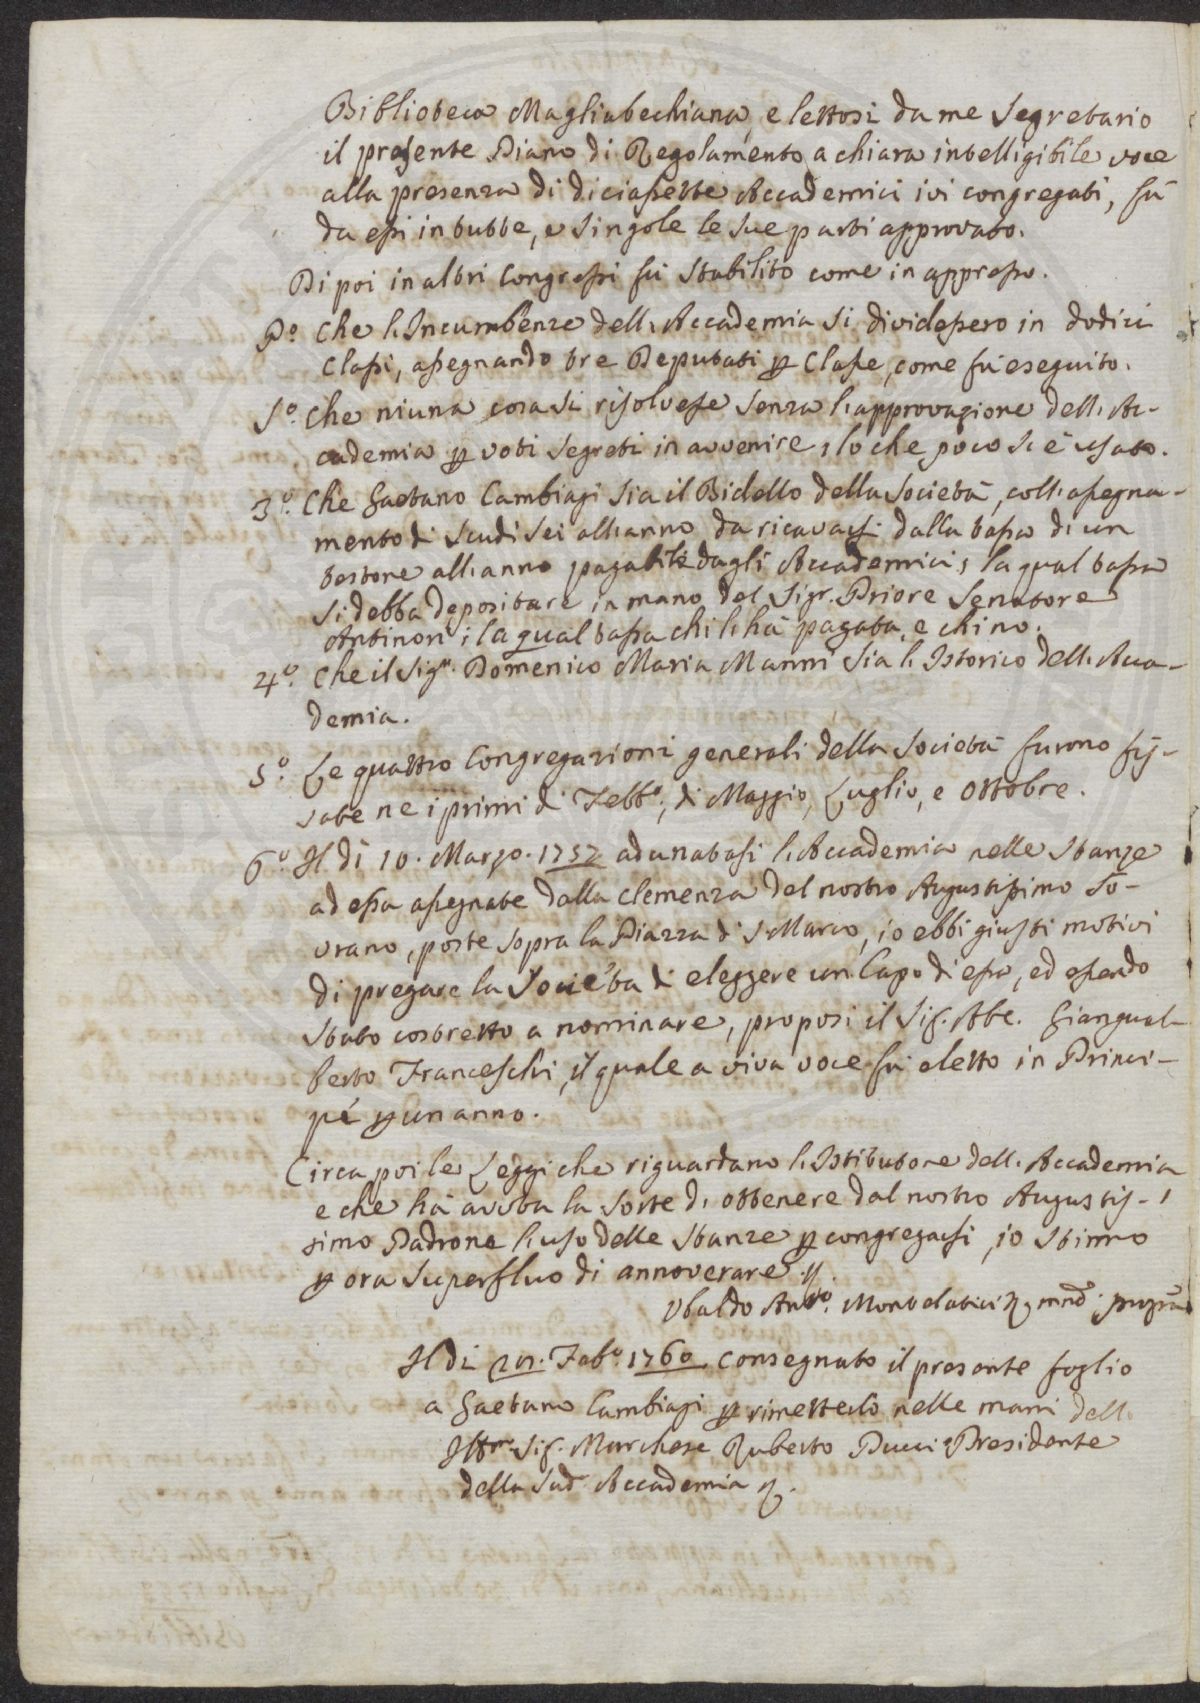 Biblioteca Magliabechiana, e lettosi da me Segretario
il presente Piano di Regolamento a chiara intelligibile voce
alla presenza di diciassette Accademici ivi congregati, fù
da essi in tutte, e singole le sue parti approvato.
Di poi in altri Congressi fù stabilito come in appresso.
P.o Che l'Incumbenze dell'Accademia si dividessero in dodici
Classi, assegnando tre Deputati p Classe, come fù eseguito.
S.o Che niuna cosa si risolvesse senza l'approvazione dell'Ac-
cademia p voti segreti in avvenire; lo che poco si è usato.
3.o Che Gaetano Cambiagi sia il Bidello della Società, coll'assegna-
mento di scudi sei all'anno da ricavarsi dalla tassa di un
testone all'anno pagabile dagli Accademici; la qual tassa
si debba depositare in mano del Sigr. Priore Senatore
Antinori; la qual tassa chi l'hà pagata, e chi no.
4.o Che il Sigr. Domenico Maria Manni sia l'Istorico dell'Acca-
demia.
5.o Le quattro Congregazioni generali della Società furono fis-
sate ne i primi di Febb.o, di Maggio, Luglio, e Ottobre.
6.o Il dì 10. Marzo. 1757 adunatasi l'Accademia nelle stanze
ad essa assegnate dalla clemenza del nostro Augustissimo So-
vrano, poste sopra la Piazza di S. Marco, io ebbi giusti motivi
di pregare la Società di eleggere un Capo di essa, ed essendo
stato costretto a nominare, proposi il Sig. Abe. Giangual-
berto Franceschi, il quale a viva voce fù eletto in Princi-
pe p un anno.
Circa poi le Leggi che riguardano l'Istitutore dell'Accademia
e che hà avuta la sorte di ottenere dal nostro Augustis-
simo Padrone l'uso delle stanze p congregarsi, io stimo
p ora superfluo di annoverare.
Ubaldo Ant.o Montelatici mno. propria
Il di Feb.o 1760 consegnato il presente foglio
a Gaetano Cambiagi p rimetterlo nelle mani dell'
Illmo. Sig. Marchese Ruberto Pucci Presidente
della Sud.a Accademia